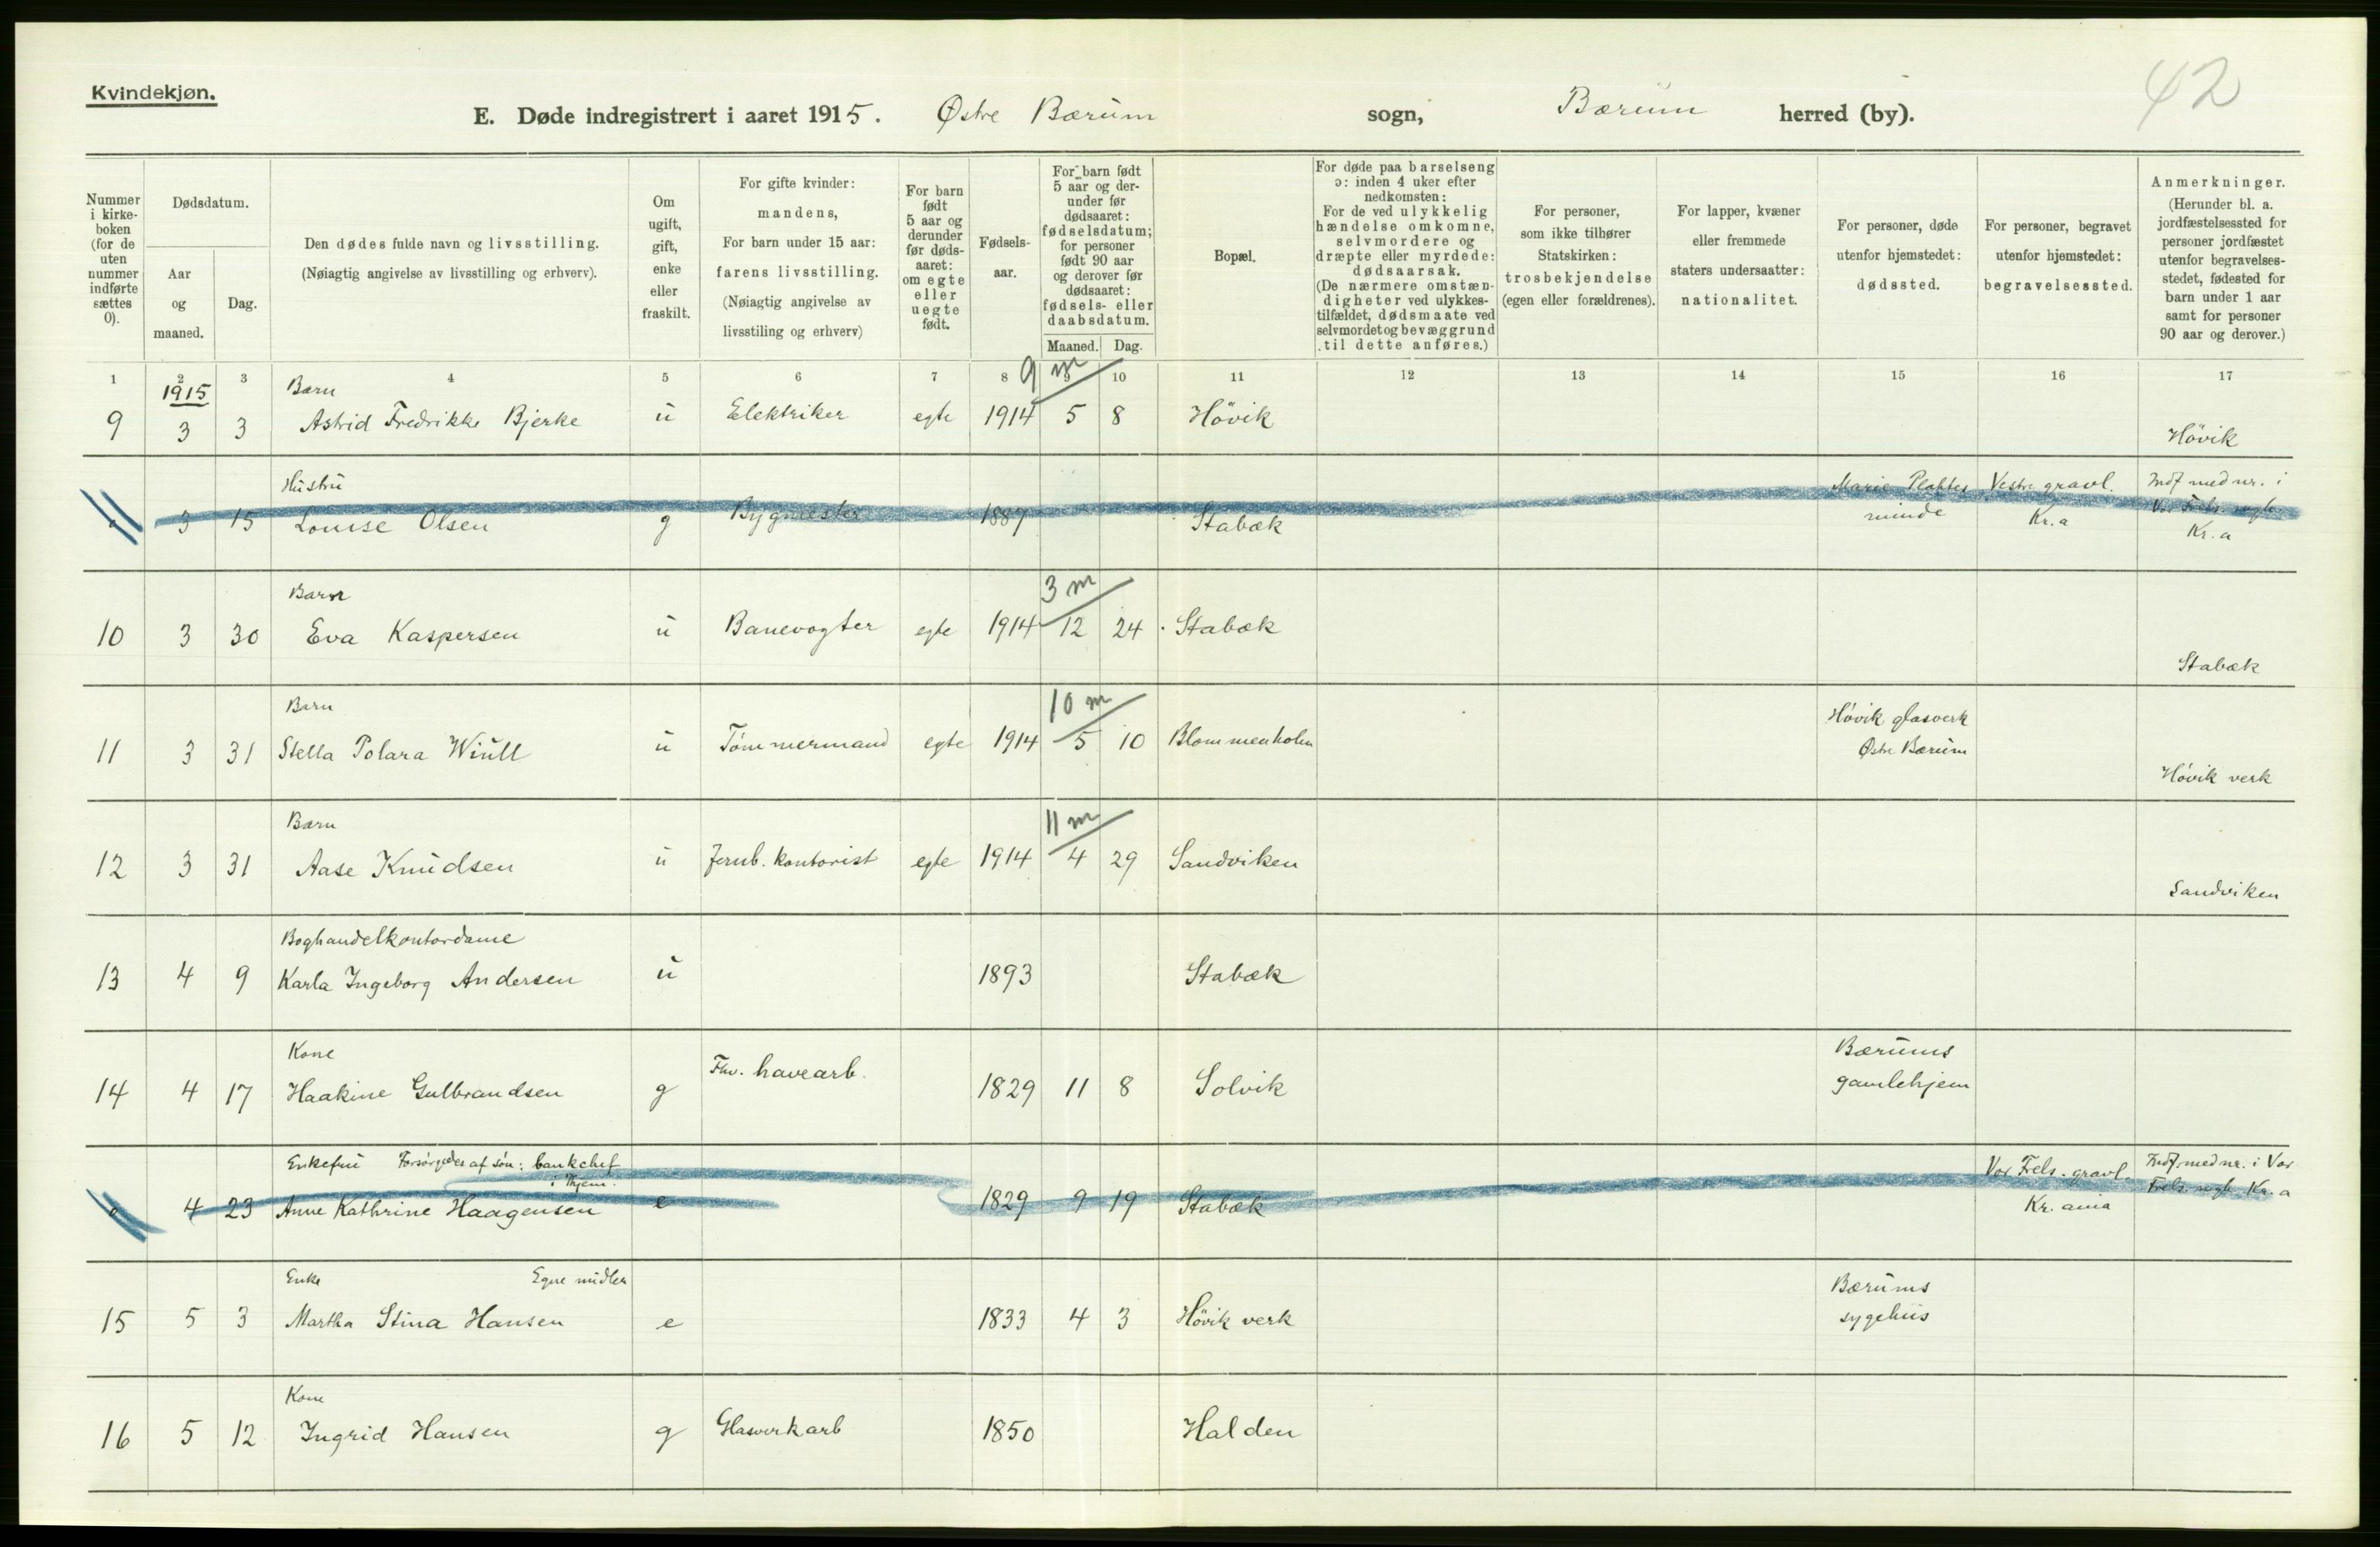 Kvindekjøn.
42
E. Døde indregistrert i aaret 1915. Østre Bærum sogn, Bærum herred (by).
Nummer i kirke-boken (for de uten nummer indførte sættes 0).
Dødsdatum.
Aar og maaned.
Dag.
Den dødes fulde navn og livsstilling.
(Nøiagtig angivelse av livsstilling og erhverv).
Om ugift, gift, enke eller fraskilt.
For gifte kvinder: mandens,
For barn under 15 aar: farens livsstilling.
(Nøiagtig angivelse av livsstiling og erhverv)
For barn født 5 aar og derunder før døds-aaret: om egte eller uegte født.
Fødsels-aar.
For barn født 5 aar og der-under før dødsaaret: fødselsdatum; for personer født 90 aar og derover før dødsaaret: fødsels- eller daabsdatum.
Maaned. Dag.
Bopæl.
For døde paa barselseng ɔ: inden 4 uker efter nedkomsten:
For de ved ulykkelig hændelse omkomne, selvmordere og dræpte eller myrdede: dødsaarsak.
(De nærmere omstæn-digheter ved ulykkes-tilfældet, dødsmaate ved selvmordet og bevæggrund til dette anføres.)
For personer, som ikke tilhører Statskirken: trosbekjendelse (egen eller forældrenes).
For lapper, kvæner eller fremmede staters undersaatter: nationalitet.
For personer, døde utenfor hjemstedet: dødssted.
For personer, begravet utenfor hjemstedet: begravelsessted.
Anmerkninger.
(Herunder bl. a. jordfæstelsessted for personer jordfæstet utenfor begravelses-stedet, fødested for barn under 1 aar samt for personer 90 aar og derover.)
1 2 3 4 5 6 7 8 9 10 11 12 13 14 15 16 17
1915 Barn 9 m
9 3 3 Astrid Fredrikke Bjerke u Elektriker egte 1914 5 8 Høvik Høvik
Hustru Marie Plahtes Vestre gravl. Indf med nr. i
0 3 15 Louise Olsen g Bygmester 1887 Stabæk minde Kr.a Vor Frels. Kr. a
Barn 3 m
10 3 30 Eva Kaspersen u Banevogter egte 1914 12 24 Stabæk Stabæk
Barn 10 m Høvik glasverk
11 3 31 Stella Polara Wiull u Tömmermand egte 1914 5 10 Blommenholm Østre Bærum Høvik verk
Barn 11 m
12 3 31 Aase Knudsen u Jernb. kontorist egte 1914 4 29 Sandviken Sandviken
Boghandelkontordame
13 4 9 Karla Ingeborg Andersen u 1893 Stabæk
Kone Bærums
14 4 17 Haakine Gulbrandsen g Fhv. havearb. 1829 11 8 Solvik gamlehjem
Enkefru Forsørgedes af søn: bankchef i Thjem. Vor Frels. gravl. Indf. med nr. i Vor
0 4 23 Anne Kathrine Haagensen e 1829 9 19 Stabæk Kr. ania Frels. Kr. a
Enke Egne midler Bærums
15 5 3 Martha Stina Hansen e 1833 4 3 Høvik verk sygehus
Kone
16 5 12 Ingrid Hansen g Glasverkarb 1850 Halden